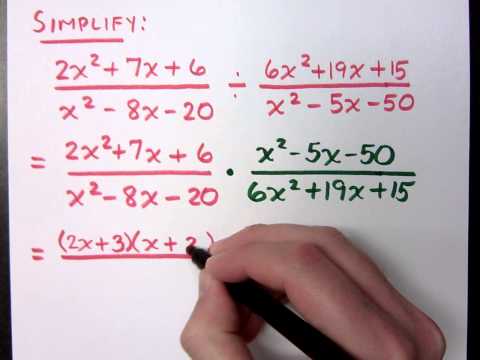 SIMPLIFY:
2x² + 7x + 6 / x² - 8x - 20 ÷ 6x² + 19x + 15 / x² - 5x - 50
= 2x² + 7x + 6 / x² - 8x - 20 · x² - 5x - 50 / 6x² + 19x + 15
= (2x + 3)(x + 2)